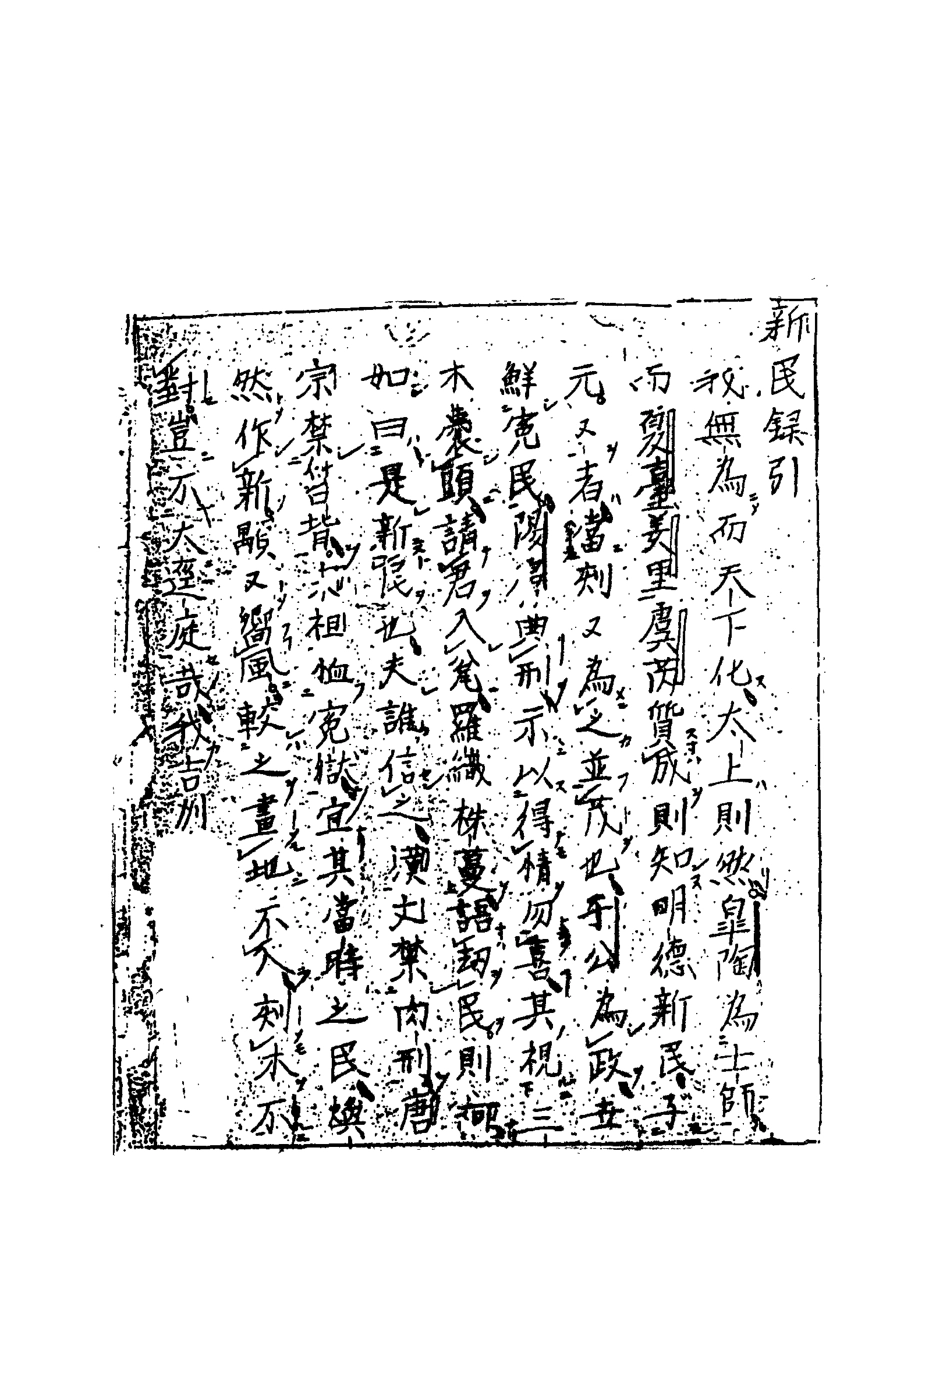 新民録引
我無為而天下化太上則然皐陶為士師
而夏臺羑里虞芮質成則知明德新民子
元又者當刻又為之並茂也于公為政世
鮮寃民陽 典刑示以得情勿喜其視三
木囊頭請君入瓮羅織株蔓語 民則
如曰是新民也夫誰信之漢文禁肉刑唐
宗禁笞背 祖恤寃獄宜其當時之民煥
然作新顯又嚮風較之畫地不入刻木不
對豈不大逕庭哉我吉州